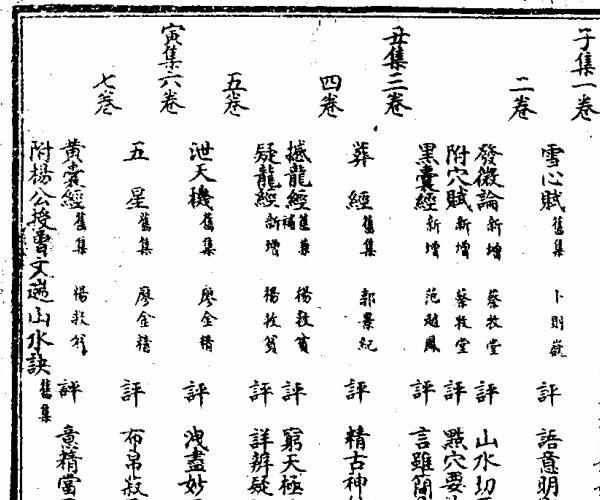 子集一卷
雪心賦 舊集 卜則巍 評 語意明
二卷
發微論 新增 蔡牧堂 評 山水切
附穴賦 新增 蔡牧堂 評 點穴要
黑囊經 新增 范越鳳 評 言雖簡
丑集三卷
葬經 舊集 郭景純 評 精古神
四卷
撼龍經 舊兼補 楊救貧 評 窮天極
疑龍經 新增 楊救貧 評 詳辨疑
五卷
泄天機 舊集 廖金精 評 洩盡妙
寅集六卷
五星 舊集 廖金精 評 布帛菽
七卷
黃囊經 舊集 楊救貧 評 意精當
附楊公授曾文遄山水訣 舊集